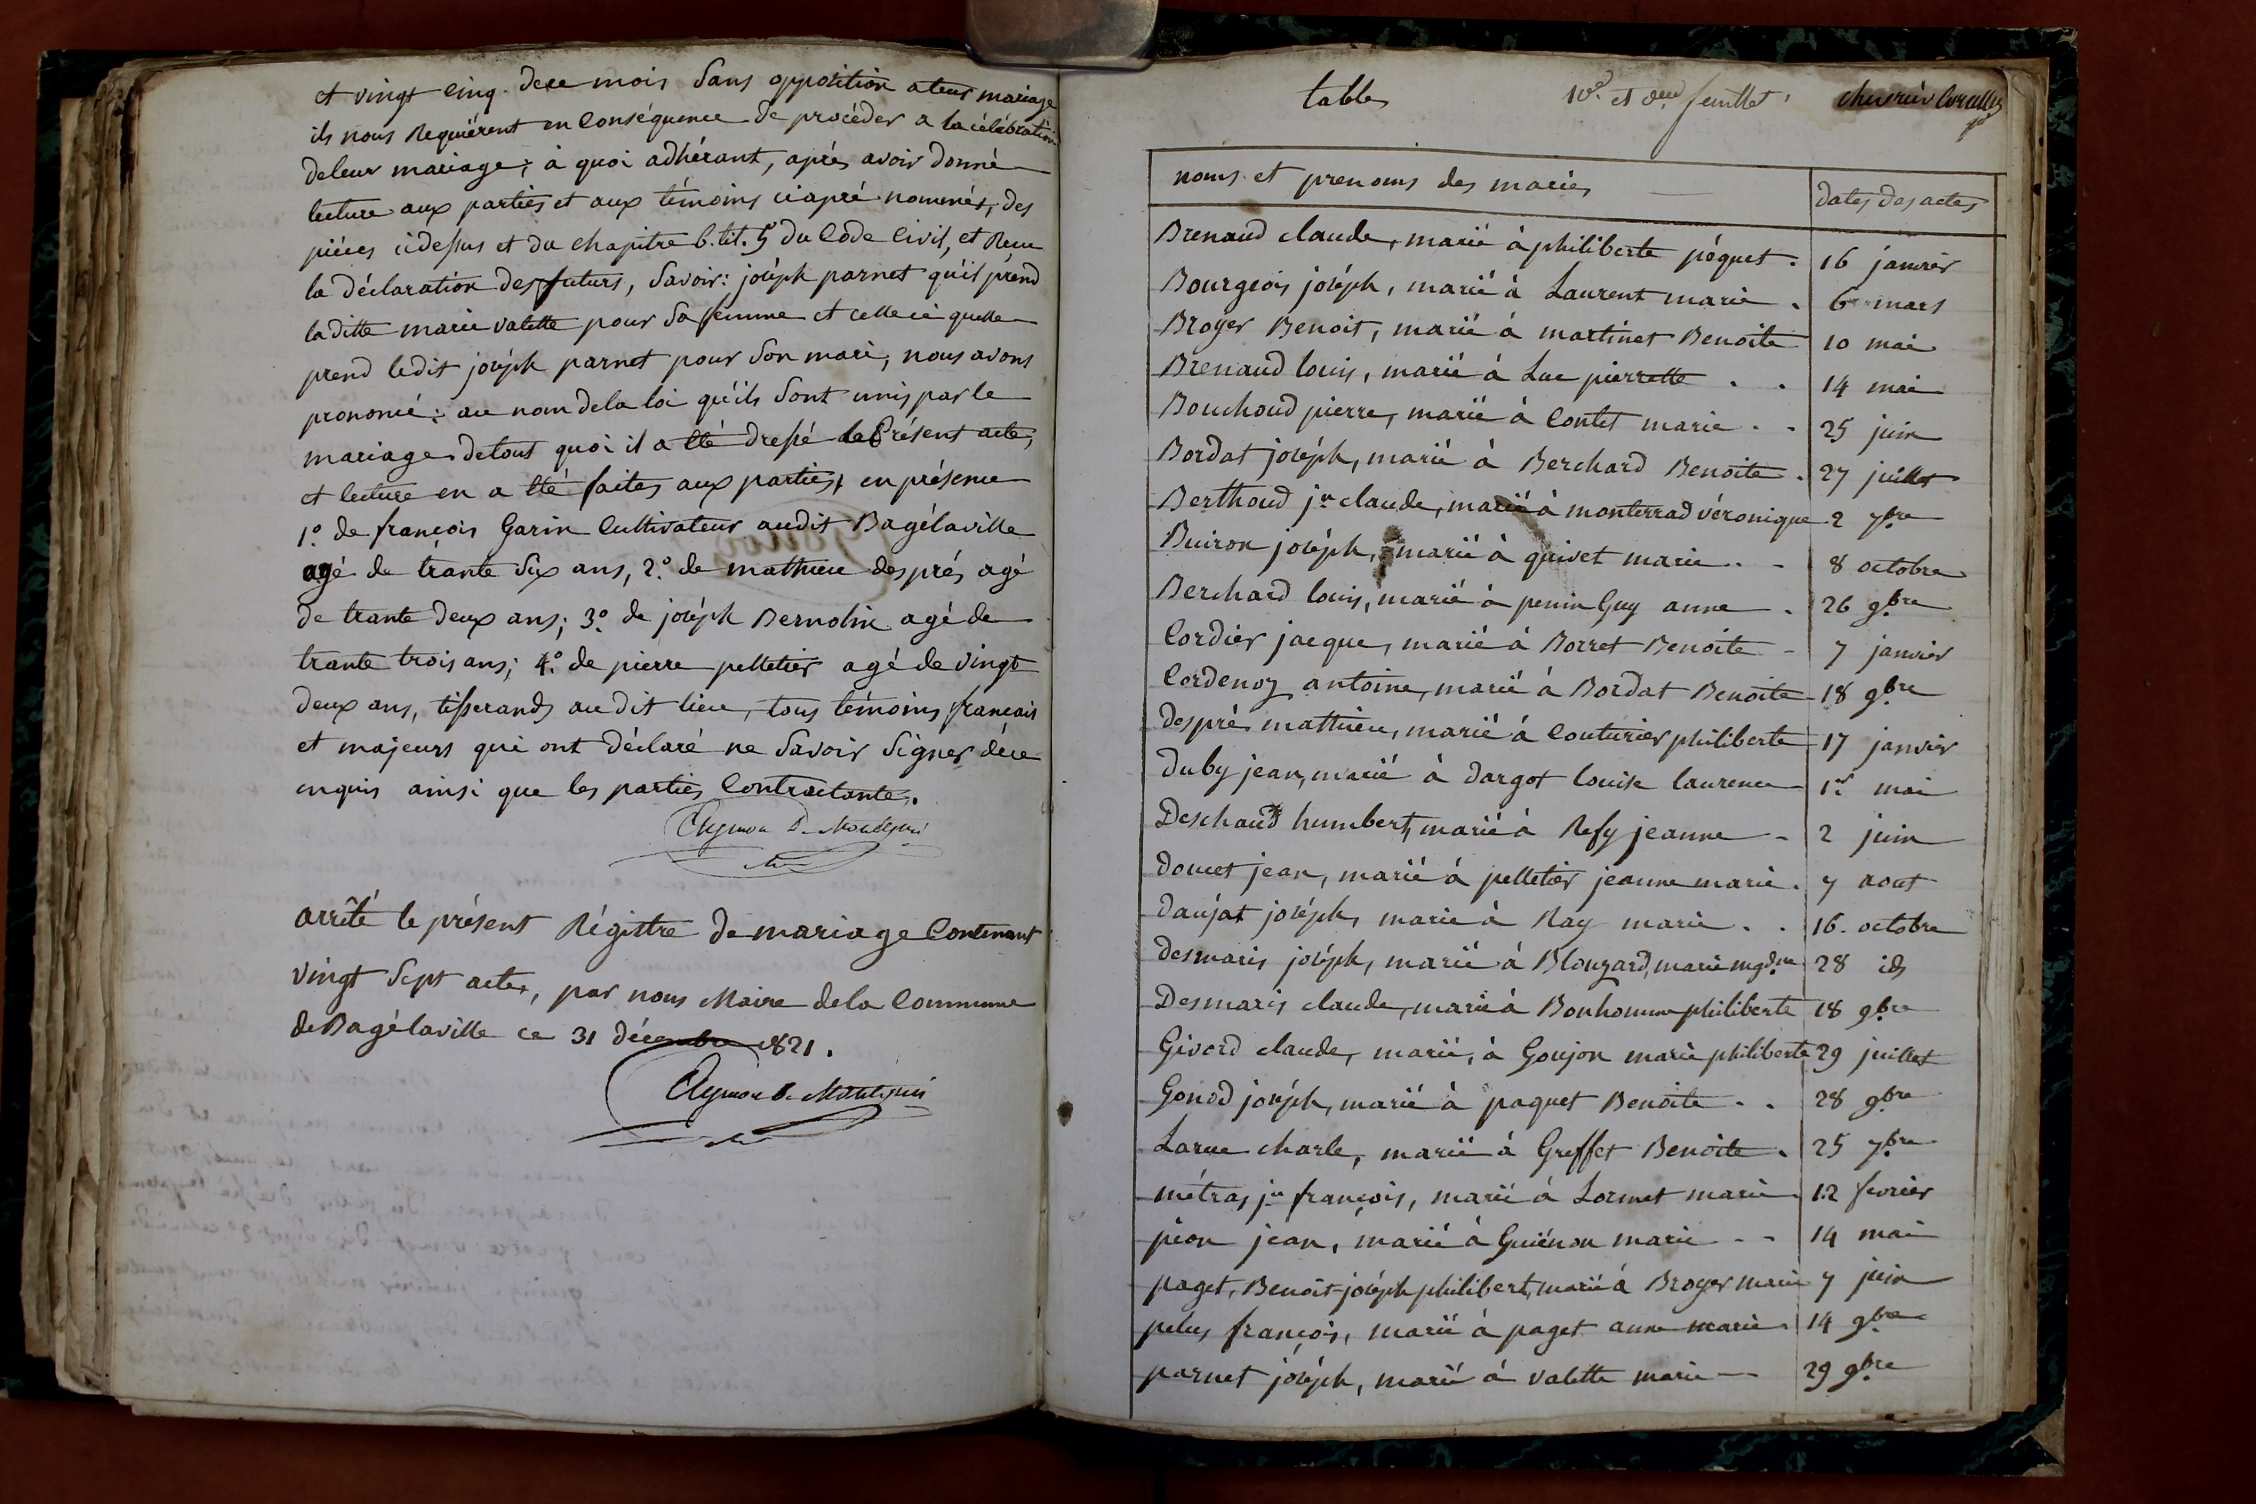 et vingt cinq de ce mois sans opposition a leur mariage
ils nous Requiérent en Conséquence de procéder a la célébration
de leur mariage; à quoi adhérant, aprés avoir donné
lecture aux parties et aux témoins ci apré nommés, des
piéces cidessus et du chapitre 6. tit. 5 du Code Civil, et Recu
la déclaration des futurs, Savoir: joséph parnet qu'il prend
laditte marie valette pour Sa femme et celle ci quelle
prend ledit joséph parnet pour Son mari, nous avons
prononcé: au nom de la loi qu'ils Sont unis par le
mariage de tout quoi il a été dressé le Présent acte,
et lecture en a été faites aux parties, en présence
1.º de françois Garin Cultivateur audit Bagélaville
agé de trante Six ans, 2.º de mathieu després agé
de trante deux ans; 3.º de joséph Bernolin agé de
trante trois ans; 4.º de pierre pelletier agé de vingt
deux ans, tisserands au dit lieu, tous témoins français
et majeurs qui ont déclaré ne Savoir Signer déce
enquis ainsi que les parties Contractantes.
Aymon D. Montépin
arrêté le présent Régistre de mariage Contenant
vingt Sept actes, par nous Maire de la Commune
de Bagélaville ce 31 décembre 1821.
Aymon D. Montépin
table 10.e et feuillet
noms et prenoms des mariés dates des actes
Brenaud claude, marié à philiberte péquet. 16 janvier
Bourgeois joséph, marié à Laurent marie. 6 mars
Broyer Benoit, marié à martinet Benoite 10 mai
Brenaud louis, marié à Luc pierrette . . 14 mai
Bouchoud pierre, marié à Contet marie . . 25 juin
Bordat joséph, marié à Berchard Benoite . 27 juillet
Berthoud j.n claude, marié à monterrad véronique 2 7bre
Buiron joséph, marié à quivet marie . . 8 octobre
Berchard louis, marié à penin Guy anne . 26 9bre
Cordier jacque, marié à Borret Benoite - 7 janvier
Cordenoz antoine, marié à Bordat Benoite 18 9bre
després mathieu, marié à Couturier philiberte 17 janvier
duby jean, marié à dargot louise laurence 1.er mai
Deschaud humbert, marié à Refy jeanne - 2 juin
doucet jean, marié à pelletier jeanne marie. 7 aout
daujat joséph, marié à Ray marie . . 16. octobre
desmaris joséph, marié à Blouzard, marie mgd.ne 28 id
Desmaris claude, marié à Bonhomme philiberte 18 9bre
Givord claude, marié, à Goujon marie philiberte 29 juillet
Gonod joséph, marié à paquet Benoite . . 28 9bre
Larue charle, marié à Greffet Benoite . 25 7bre
métras j.n françois, marié à Lormet marie 12 fevrier
péon jean, marié à Guiénon marie - - 14 mai
paget, Benoit-joséph philibert, marié à Broyer marie 7 juin
pelus françois, marié à paget anne marie. 14 9bre
parnet joséph, marié à valette marie — 29 9bre